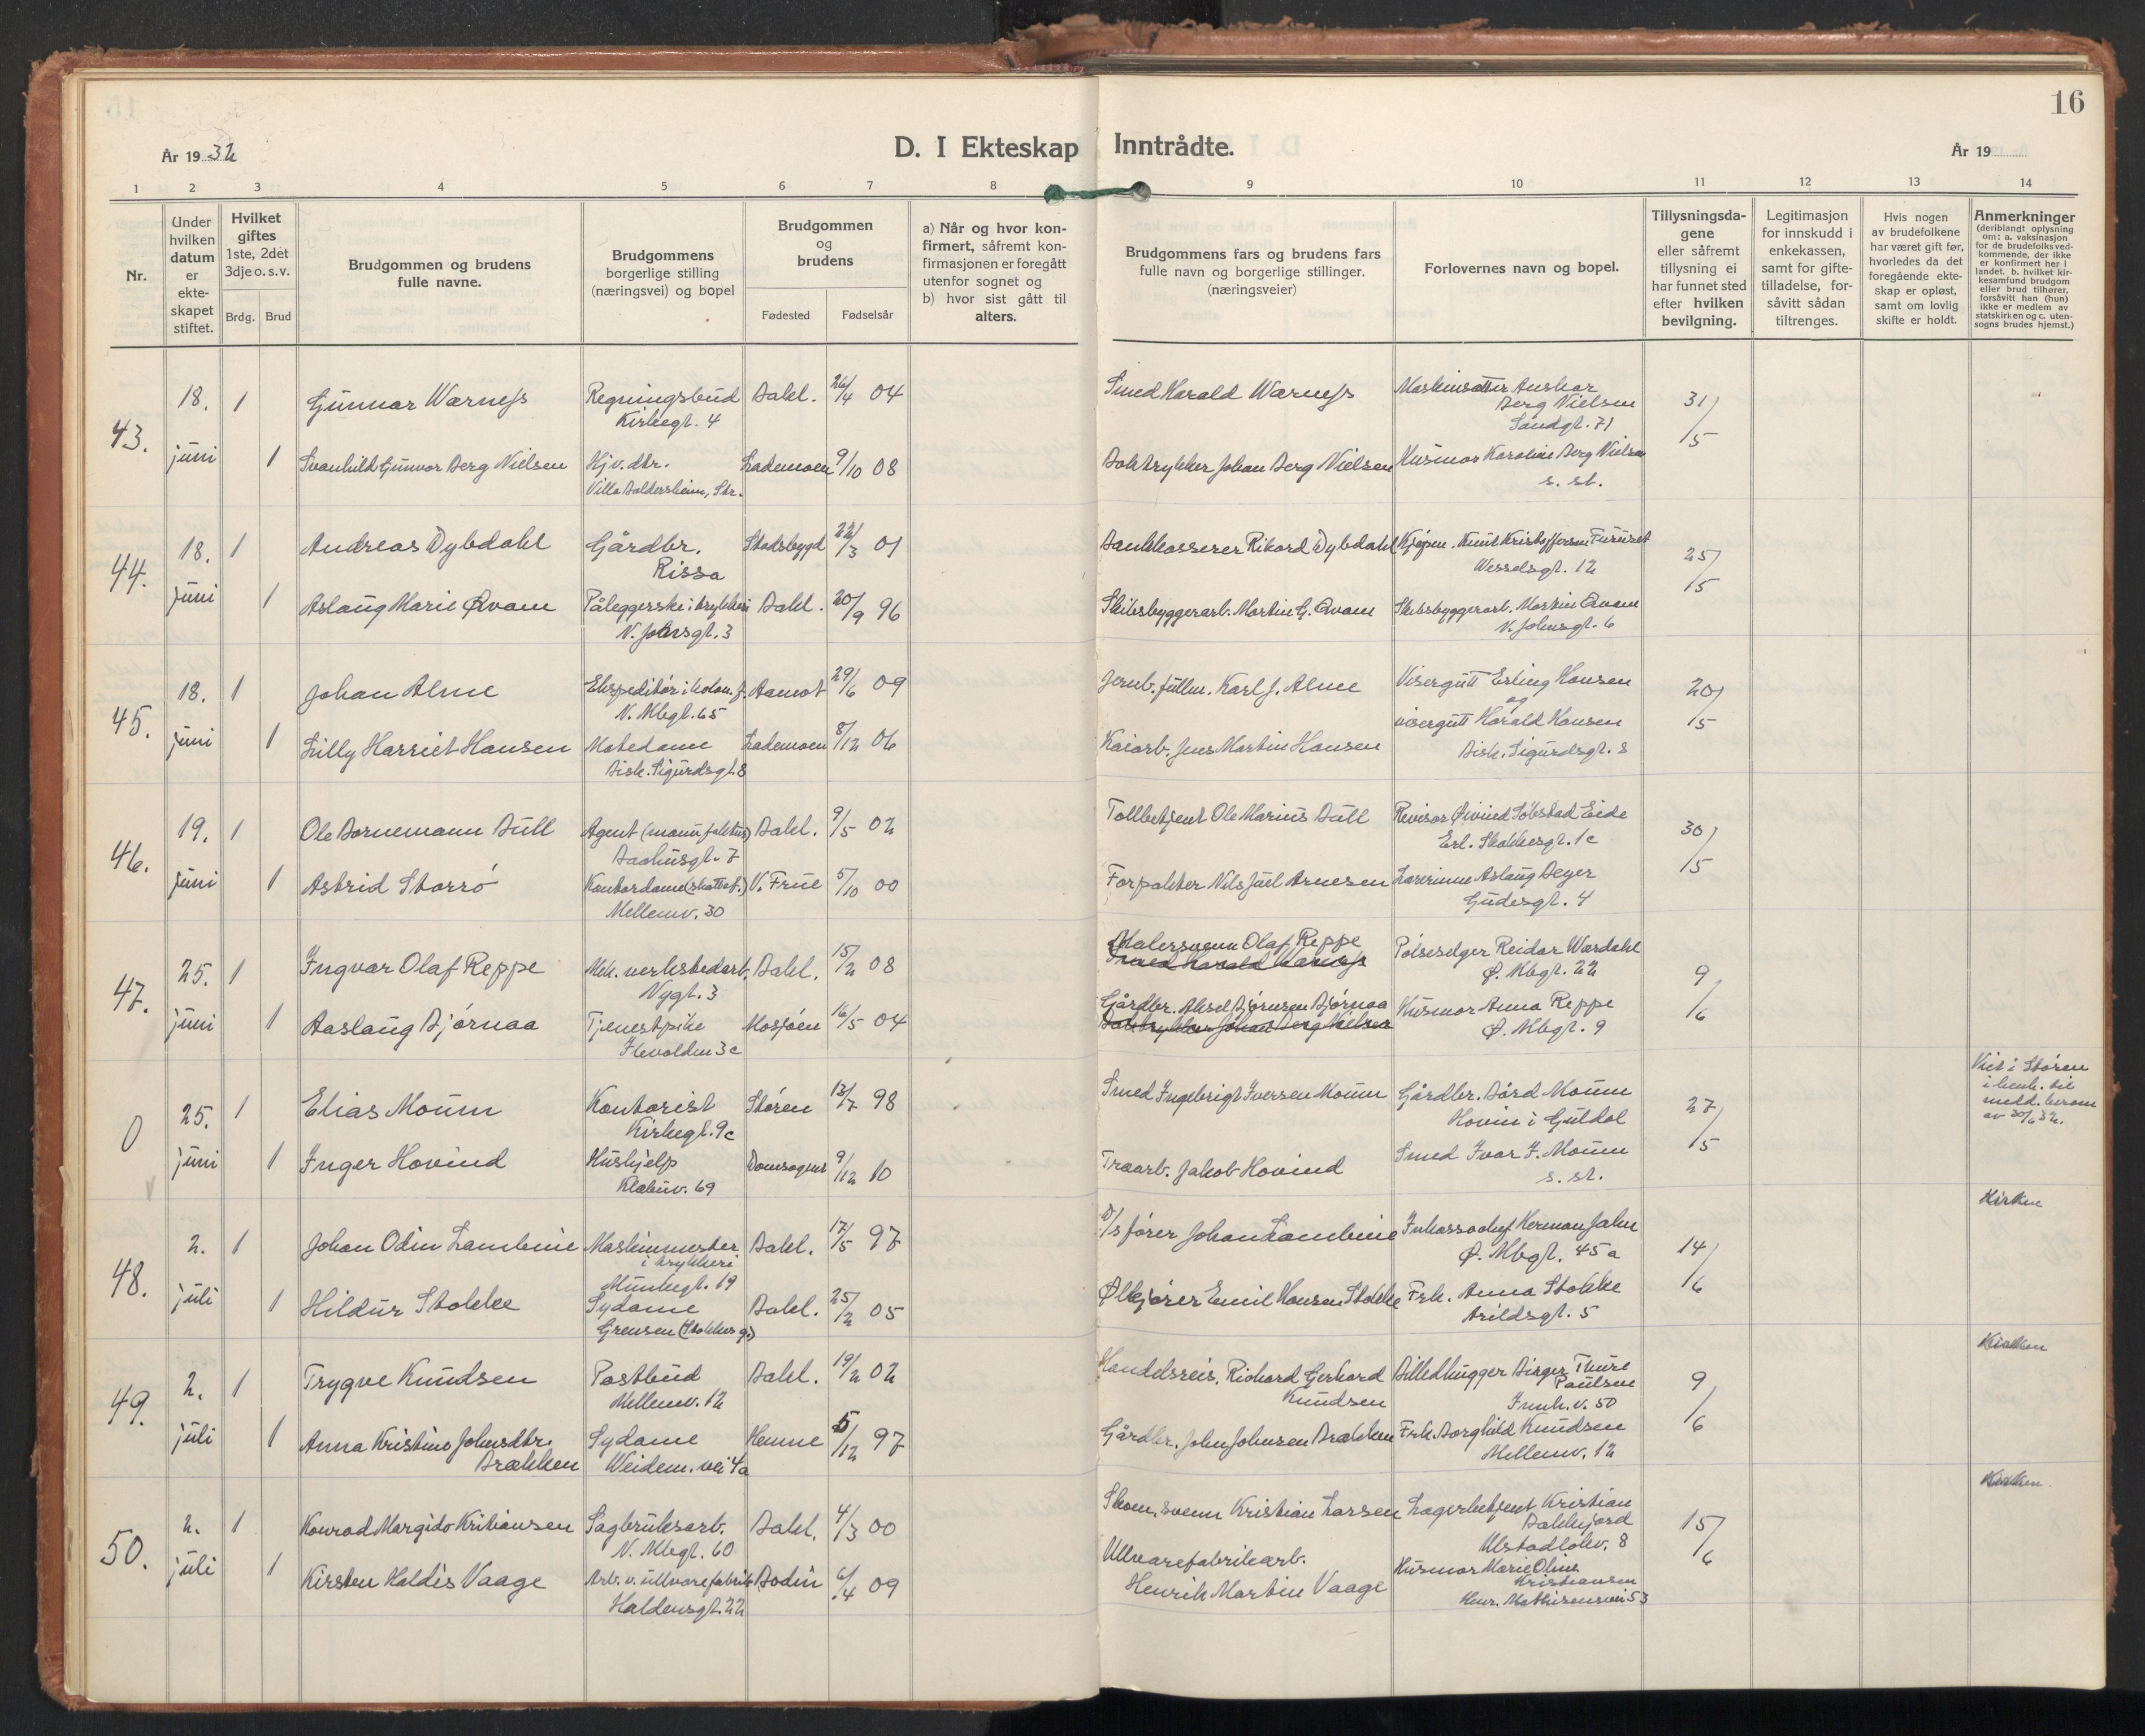 16
År 19 32
D. I Ekteskap Inntrådte.
År 19
1 2 3 4 5 6 7 8 9 10 11 12 13 14
Nr.
Under hvilken datum er ekte-skapet stiftet.
Hvilket giftes 1ste, 2det 3dje o. s. v.
Brdg. Brud
Brudgommen og brudens fulle navne.
Brudgommens borgerlige stilling (næringsvei) og bopel
Brudgommen og brudens
Fødested Fødselsår
a) Når og hvor kon-firmert, såfremt kon-firmasjonen er foregått utenfor sognet og b) hvor sist gått til alters.
Brudgommens fars og brudens fars fulle navn og borgerlige stillinger. (næringsveier)
Forlovernes navn og bopel.
Tillysningsda-gene eller såfremt tillysning ei har funnet sted efter hvilken bevilgning.
Legitimasjon for innskudd i enkekassen, samt for gifte-tilladelse, for-såvitt sådan tiltrenges.
Hvis nogen av brudefolkene har været gift før, hvorledes da det foregående ekte-skap er opløst, samt om lovlig skifte er holdt.
Anmerkninger (deriblandt oplysning om: a. vaksinasjon for de brudefolksved-kommende, der ikke er konfirmert her i landet. b. hvilket kir-kesamfund brudgom eller brud tilhører, forsåvitt han (hun) ikke er medlem av statskirken og c. uten-sogns brudes hjemst.)
43. 18. juni
1 Gunnar Warness Regningsbud Kirkegt. 4 Bakl. 26/4 04 Smed Harald Warness Maskinsetter Anskar Berg Nielsen Sandgt. 71 31/5
1 Svanhild Gunvor Berg Nielsen Hjv. dtr. Villa Baldersheim, Str. Lademoen 9/10 08 Boktrykker Johan Berg Nielsen Husmor Karoline Berg Nielsen s. st.
44. 18. juni
1 Andreas Dybdahl Gårdbr. Rissa Stadsbygd 22/3 01 Bankkasserer Rikard Dybdahl Kjøpm. Knut Kristoffersen Furuset Wesselsgt. 12 25/5
1 Aslaug Marie Qvam Påleggerske i trykkeri N. Johnsgt. 3 Bakl. 20/9 96 Skibsbyggerarb. Martin G. Qvam Skibsbyggerarb. Martin Qvam N. Johnsgt. 6
45. 18. juni
1 Johan Alme Ekspeditør i kolon. f. N. Mbgt. 65 Aamot 29/6 09 Jernb. fullm. Karl J. Alme Visergutt Erling Hansen og 20/5
1 Lilly Harriet Hansen Motedame Bisk. Sigurdsgt. 8 Lademoen 8/12 06 Kaiarb. Jens Martin Hansen visergutt Harald Hansen Bisk. Sigurdsgt. 8
46. 19. juni
1 Ole Bornemann Bull Agent (manufaktur) Bakl. 9/5 02 Tollbetjent Ole Marius Bull Revisor Øivind Solstad Eide Erl. Skakkesgt. 1c 30/5
1 Astrid Storrø Kontordame (skattest.) Mellemv. 30 V. Frue 5/10 00 Forpakter Nils Juel Arnesen Lærerinne Aslaug Beyer Gudesgt. 4
47. 25. juni
1 Ingvar Olaf Reppe Mek. verkstedarb. Nygt. 3 Bakl. 15/2 08 Malersvenn Olaf Reppe Smed Harald Warness Pølseselger Reidar Wærdahl Ø. Mbgt. 22 9/6
1 Aaslaug Bjørnaa Tjenestpike Ilevolden 3c Mosjøen 16/5 04 Gårdbr. Aksel Bjørnsen Bjørnaa Boktrykker Johan Berg Nielsen Husmor Anna Reppe Ø. Mbgt. 9
0 25. juni
1 Elias Moum Kontorist Kirkegt. 9c Støren 13/7 98 Smed Ingebrigt Iversen Moum Gårdbr. Bård Moum Hovin i Guldal 27/5 Viet i Støren i henh. til medd. herom av 30/6 32.
1 Inger Hovind Hushjelp Klæbuv. 69 Domsognet 9/12 10 Træarb. Jakob Hovind Smed Ivar I. Moum s. st.
48. 2. juli
1 Johan Odin Lambine Maskinmester i trykkeri Munkegt. 19 Bakl. 17/5 97 D/s fører Johan Lambine Inkassochef Herman Jahn Ø. Mbgt. 45a 14/6 Kirken
1 Hildur Stokke Sydame Grensen (Stokkes g.) Bakl. 25/2 05 Ølkjører Emil Hansen Stokke Frk. Anna Stokke Arildsgt. 5
49. 2. juli
1 Trygve Knudsen Postbud Mellemv. 12 Bakl. 19/2 02 Handelsreis. Richard Gerhard Knudsen Billedhugger Birger Thure Paulsen Innh. v. 50 9/6 Kirken
1 Anna Kristine Johnsdtr. Brækken Sydame Weidem. vei 4a Hemne 5/12 97 Gårdbr. John Johnsen Brækken Frk. Borghild Knudsen Mellemv. 12
50. 2. juli
1 Konrad Margido Kristiansen Sagbruksarb. N. Mbgt. 60 Bakl. 4/3 00 Skom. svenn Kristian Larsen Lagerbetjent Kristian Bakkejord Ulstadløkv. 8 15/6 Kirken.
1 Kirsten Haldis Vaage Arb. v. ullvarefabrik Haldensgt. 22 Bodin 6/4 09 Ullvarefabrikarb. Henrik Martin Vaage Husmor Marie Oline Kristiansen Henr. Mathisensvei 53